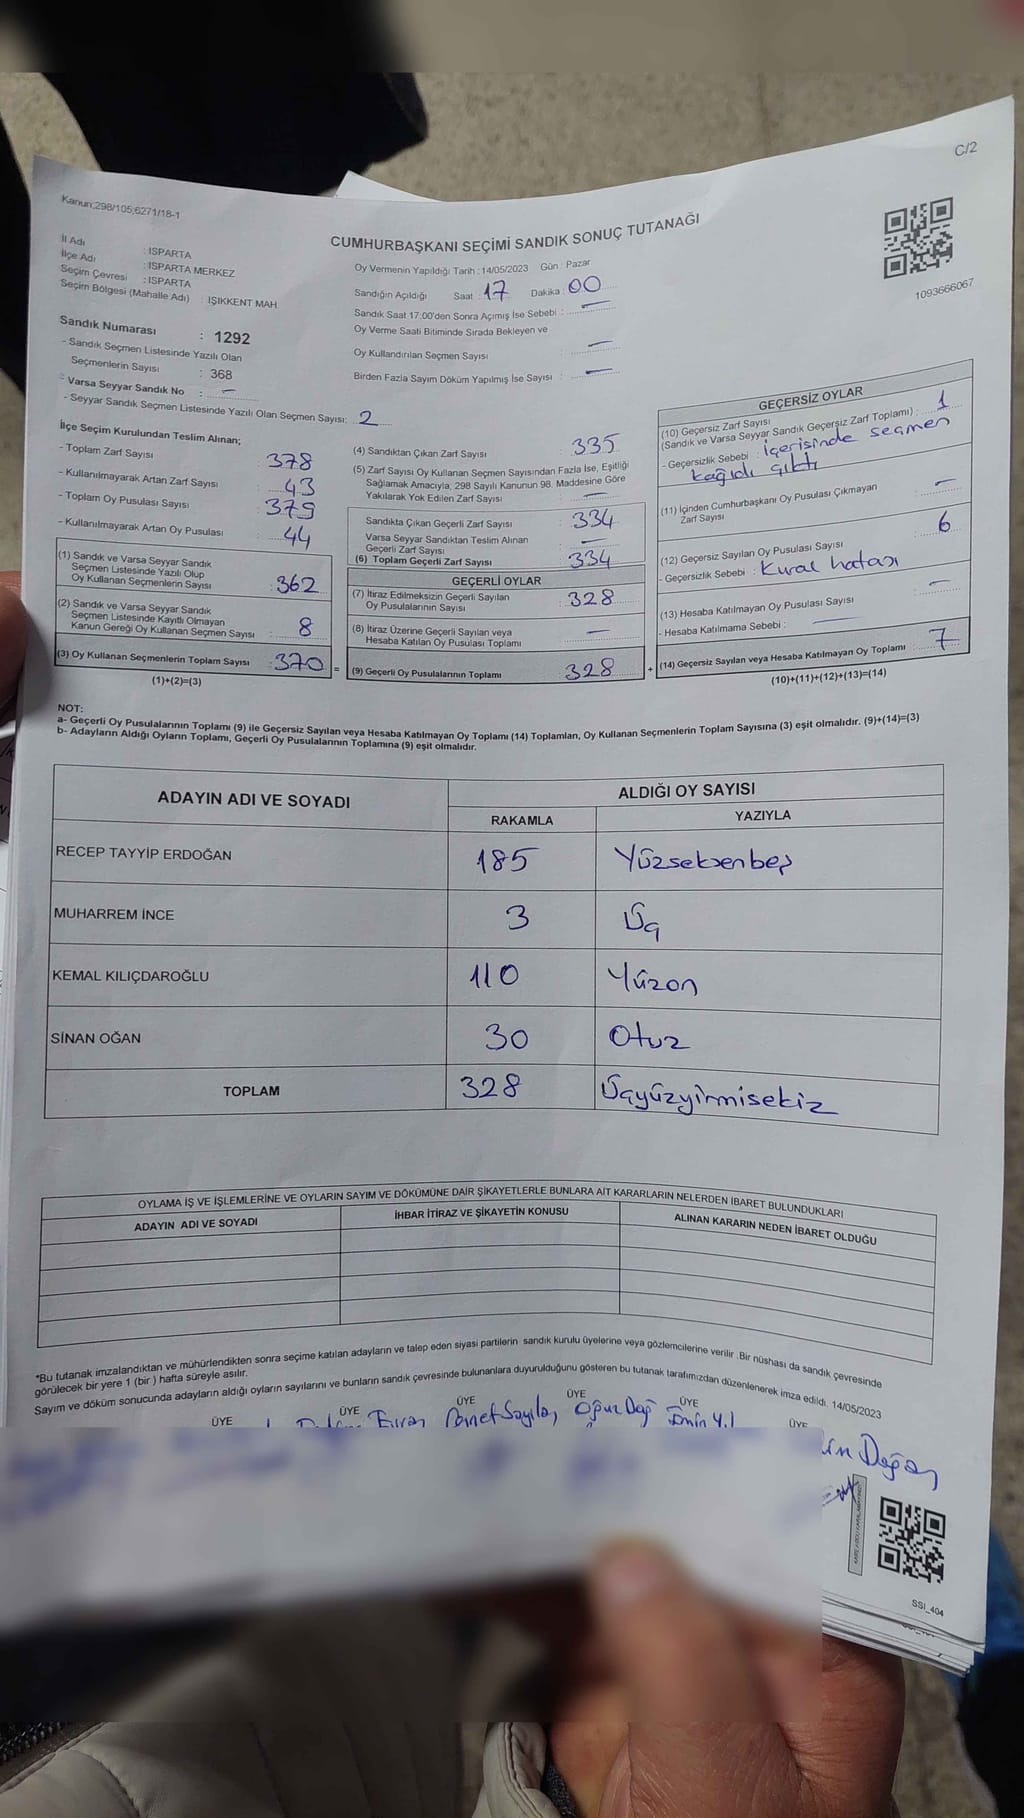 C/2
Kanun;298/105;6271/18-1
CUMHURBAŞKANI SEÇİMİ SANDIK SONUÇ TUTANAĞI
1093666067
İl Adı : ISPARTA
İlçe Adı : ISPARTA MERKEZ
Seçim Çevresi : ISPARTA
Seçim Bölgesi (Mahalle Adı) : IŞIKKENT MAH.
Oy Vermenin Yapıldığı Tarih : 14/05/2023 Gün : Pazar
Sandığın Açıldığı Saat : 17 Dakika : 00
Sandık Saat 17:00'den Sonra Açımış İse Sebebi : —
Oy Verme Saati Bitiminde Sırada Bekleyen ve
Oy Kullandırılan Seçmen Sayısı : —
Birden Fazla Sayım Döküm Yapılmış İse Sayısı : —
Sandık Numarası : 1292
- Sandık Seçmen Listesinde Yazılı Olan
Seçmenlerin Sayısı : 368
- Varsa Seyyar Sandık No : —
- Seyyar Sandık Seçmen Listesinde Yazılı Olan Seçmen Sayısı: 2
İlçe Seçim Kurulundan Teslim Alınan;
- Toplam Zarf Sayısı : 378
- Kullanılmayarak Artan Zarf Sayısı : 43
- Toplam Oy Pusulası Sayısı : 379
- Kullanılmayarak Artan Oy Pusulası : 44
(1) Sandık ve Varsa Seyyar Sandık
Seçmen Listesinde Yazılı Olup
Oy Kullanan Seçmenlerin Sayısı : 362
(2) Sandık ve Varsa Seyyar Sandık
Seçmen Listesinde Kayıtlı Olmayan
Kanun Gereği Oy Kullanan Seçmen Sayısı : 8
(3) Oy Kullanan Seçmenlerin Toplam Sayısı : 370 =
(1)+(2)=(3)
(4) Sandıktan Çıkan Zarf Sayısı : 335
(5) Zarf Sayısı Oy Kullanan Seçmen Sayısından Fazla İse, Eşitliği
Sağlamak Amacıyla; 298 Sayılı Kanunun 98. Maddesine Göre
Yakılarak Yok Edilen Zarf Sayısı : —
Sandıkta Çıkan Geçerli Zarf Sayısı : 334
Varsa Seyyar Sandıktan Teslim Alınan
Geçerli Zarf Sayısı : —
(6) Toplam Geçerli Zarf Sayısı : 334
GEÇERLİ OYLAR
(7) İtiraz Edilmeksizin Geçerli Sayılan
Oy Pusulalarının Sayısı : 328
(8) İtiraz Üzerine Geçerli Sayılan veya
Hesaba Katılan Oy Pusulası Toplamı : —
(9) Geçerli Oy Pusulalarının Toplamı : 328 +
GEÇERSİZ OYLAR
(10) Geçersiz Zarf Sayısı
(Sandık ve Varsa Seyyar Sandık Geçersiz Zarf Toplamı) : 1
- Geçersizlik Sebebi : İçerisinde seçmen
kağıdı çıktı
(11) İçinden Cumhurbaşkanı Oy Pusulası Çıkmayan
Zarf Sayısı : —
(12) Geçersiz Sayılan Oy Pusulası Sayısı : 6
- Geçersizlik Sebebi : Kural hatası
(13) Hesaba Katılmayan Oy Pusulası Sayısı : —
- Hesaba Katılmama Sebebi : —
(14) Geçersiz Sayılan veya Hesaba Katılmayan Oy Toplamı : 7
(10)+(11)+(12)+(13)=(14)
NOT:
a- Geçerli Oy Pusulalarının Toplamı (9) ile Geçersiz Sayılan veya Hesaba Katılmayan Oy Toplamı (14) Toplamları, Oy Kullanan Seçmenlerin Toplam Sayısına (3) eşit olmalıdır. (9)+(14)=(3)
b- Adayların Aldığı Oyların Toplamı, Geçerli Oy Pusulalarının Toplamına (9) eşit olmalıdır.
ADAYIN ADI VE SOYADI ALDIĞI OY SAYISI
RAKAMLA YAZIYLA
RECEP TAYYİP ERDOĞAN 185 Yüzseksenbeş
MUHARREM İNCE 3 Üç
KEMAL KILIÇDAROĞLU 110 Yüzon
SİNAN OĞAN 30 Otuz
TOPLAM 328 Üçyüzyirmisekiz
OYLAMA İŞ VE İŞLEMLERİNE VE OYLARIN SAYIM VE DÖKÜMÜNE DAİR ŞİKAYETLERLE BUNLARA AİT KARARLARIN NELERDEN İBARET BULUNDUKLARI
ADAYIN ADI VE SOYADI İHBAR İTİRAZ VE ŞİKAYETİN KONUSU ALINAN KARARIN NEDEN İBARET OLDUĞU
*Bu tutanak imzalandıktan ve mühürlendikten sonra seçime katılan adayların ve talep eden siyasi partilerin sandık kurulu üyelerine veya gözlemcilerine verilir .Bir nüshası da sandık çevresinde
görülecek bir yere 1 (bir ) hafta süreyle asılır.
Sayım ve döküm sonucunda adayların aldığı oyların sayılarını ve bunların sandık çevresinde bulunanlara duyurulduğunu gösteren bu tutanak tarafımızdan düzenlenerek imza edildi. 14/05/2023
ÜYE ÜYE ÜYE ÜYE ÜYE ÜYE
Oğuz Dağ Emin
Doğan
SSI_404